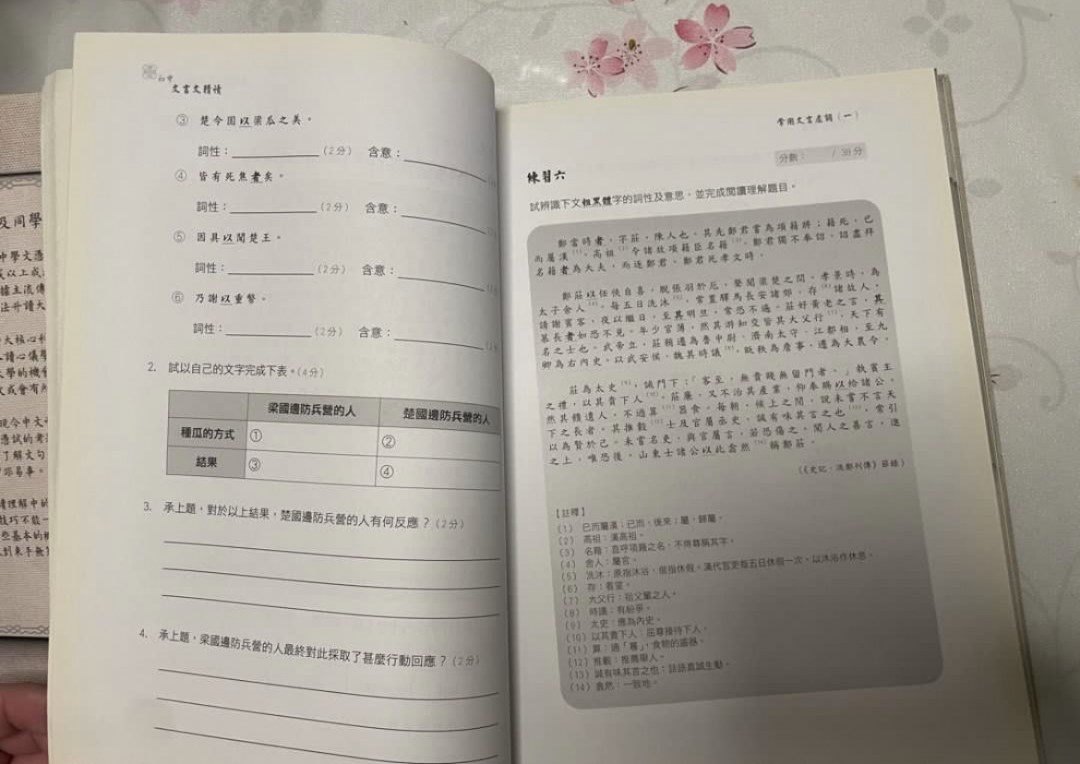 及同學
初中
文言文精讀
③ 楚令因以梁瓜之美。
詞性：（2分） 含意：
④ 皆有死焦者矣。
詞性：（2分） 含意：
⑤ 因具以聞楚王。
詞性：（2分） 含意：
⑥ 乃謝以重幣。
詞性：（2分） 含意：
2. 試以自己的文字完成下表。（4分）
梁國邊防兵營的人 楚國邊防兵營的人
種瓜的方式 ① ②
結果 ③ ④
3. 承上題，對於以上結果，楚國邊防兵營的人有何反應？（2分）
4. 承上題，梁國邊防兵營的人最終對此採取了甚麼行動回應？（2分）
常用文言虛詞（一）
練習六
分數： / 38分
試辨識下文粗黑體字的詞性及意思，並完成閱讀理解題目。
鄭當時者，字莊，陳人也。其先鄭君嘗為項籍將；籍死，已
而屬漢（1）。高祖（2）令諸故項籍臣名籍（3），鄭君獨不奉詔。詔盡拜
名籍者為大夫，而逐鄭君。鄭君死孝文時。
鄭莊以任俠自喜，脫張羽於厄，聲聞梁楚之間。孝景時，為
太子舍人（4）。每五日洗沐（5），常置驛馬長安諸郊，存（6）諸故人，
請謝賓客，夜以繼日，至其明旦，常恐不遍。莊好黃老之言，其
慕長者如恐不見。年少官薄，然其游知交皆其大父行（7），天下有
名之士也。武帝立，莊稍遷為魯中尉、濟南太守、江都相，至九
卿為右內史。以武安侯、魏其時議（8），貶秩為詹事，遷為大農令。
莊為太史（9），誡門下：「客至，無貴賤無留門者。」執賓主
之禮，以其貴下人（10）。莊廉，又不治其產業，仰奉賜以給諸公。
然其餽遺人，不過算（11）器食。每朝，候上之間，說未嘗不言天
下之長者。其推轂（12）士及官屬丞史，誠有味其言之也（13），常引
以為賢於己。未嘗名吏，與官屬言，若恐傷之。聞人之善言，進
之上，唯恐後。山東士諸公以此翕然（14）稱鄭莊。
（《史記．汲鄭列傳》節錄）
【註釋】
（1） 已而屬漢：已而，後來；屬，歸屬。
（2） 高祖：漢高祖。
（3） 名籍：直呼項籍之名，不得尊稱其字。
（4） 舍人：屬官。
（5） 洗沐：原指沐浴，借指休假。漢代官吏每五日休假一次，以沐浴作休息。
（6） 存：看望。
（7） 大父行：祖父輩之人。
（8） 時議：有紛爭。
（9） 太史：應為內史。
（10）以其貴下人：屈尊接待下人。
（11）算：通「匴」，食物的盛器。
（12）推轂：推薦舉人。
（13）誠有味其言之也：話語真誠生動。
（14）翕然：一致地。